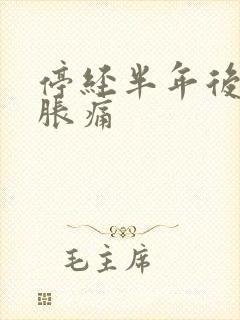 停经半年後
脹痛
毛主席